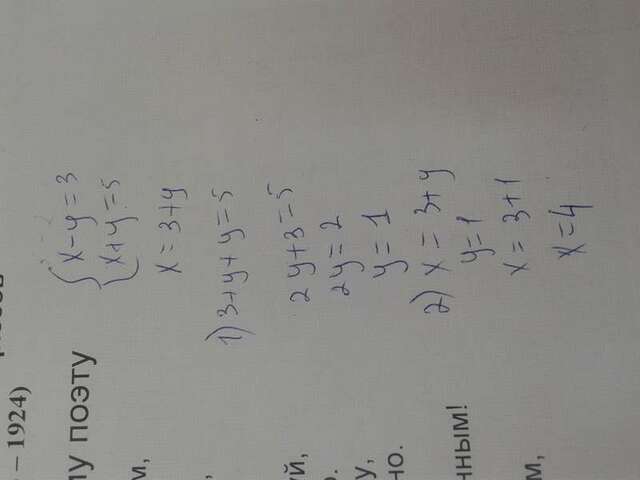 – 1924)
му поэту
м,
{x-y=3
{x+y=5
x=3+y
1) 3+y+y=5
2y+3=5
уй,
2y=2
у,
y=1
но.
2) x=3+y
нным!
y=1
x=3+1
м,
x=4